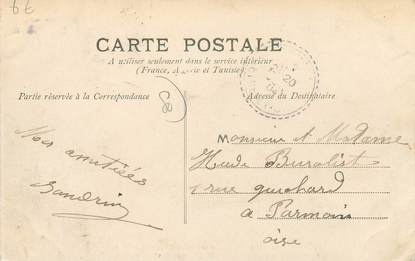 6€
CARTE POSTALE
A utiliser seulement dans le service intérieur
(France, Algérie et Tunisie)
Partie réservée à la Correspondance
Adresse du Destinataire
20
Mes amitiés
Monsieur et Madame
Hude Buralist
rue guichard
a
oise